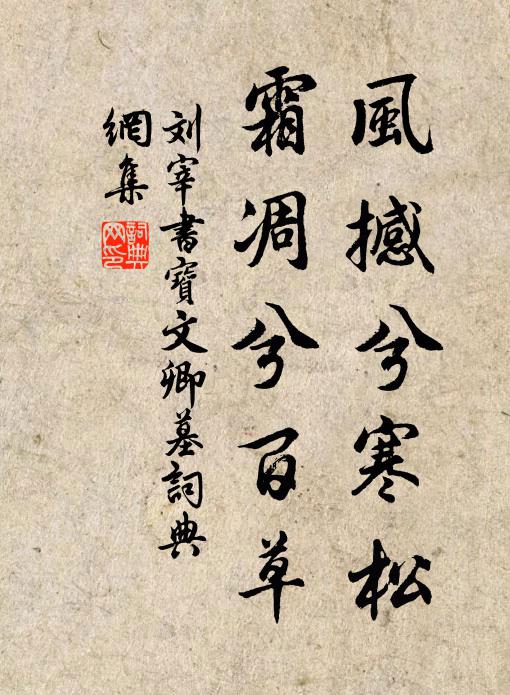 風撼兮寒松
霜凋兮百草
刘宰書寶文卿墓詞典
網集
詞典
网印